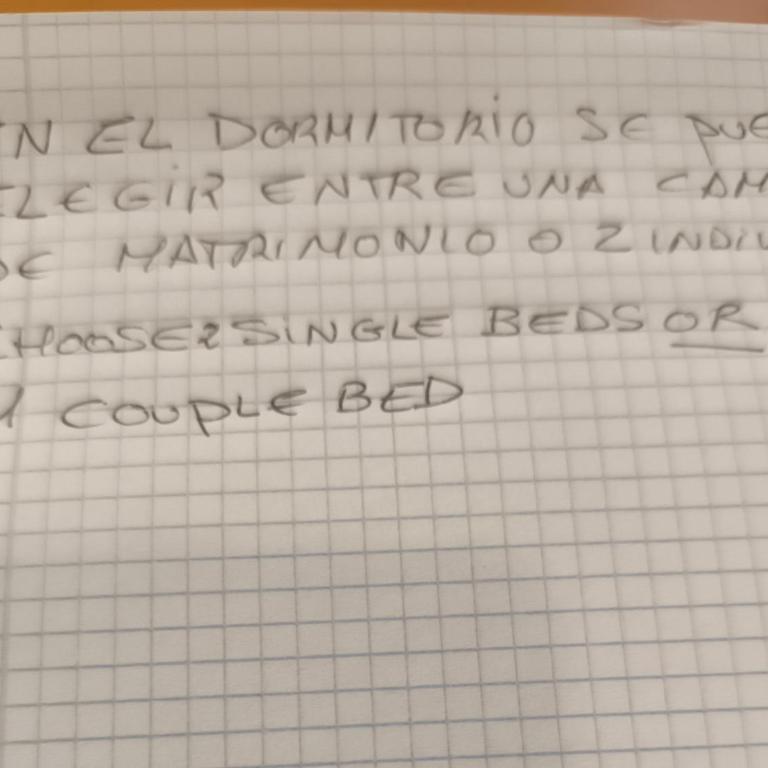 N EL DORMITORIO SE PUE
ELEGIR ENTRE UNA CAM
DE MATRIMONIO O 2 INDIV
CHOOSE 2 SINGLE BEDS OR
1 COUPLE BED